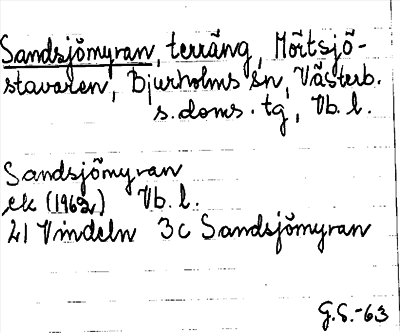 Sandsjömyran, terräng, Mörtsjö-
stavaren, Bjurholms sn, Västerb.
s. doms. tg, Vb. l.
Sandsjömyran
ek (1962) Vb. l.
21 Vindeln 3c Sandsjömyran
G.S.-63